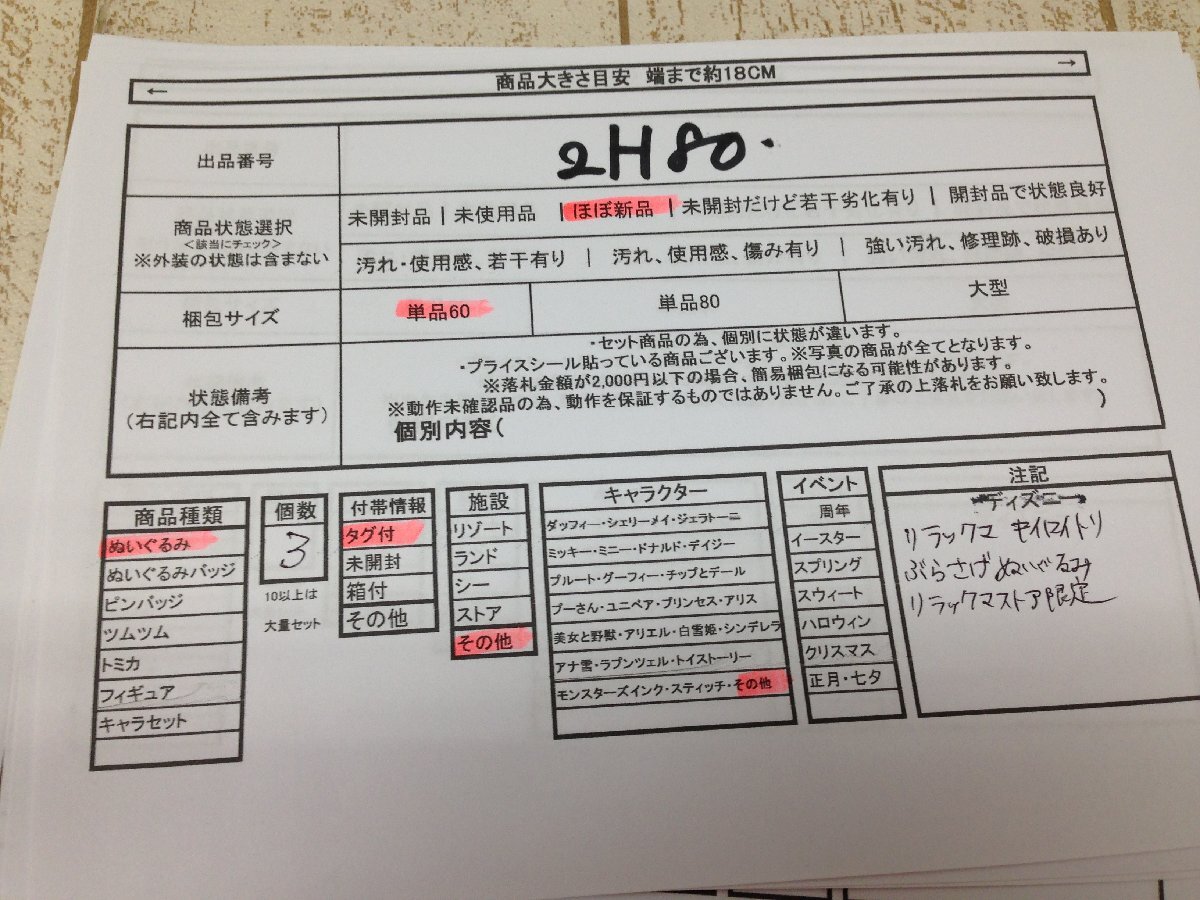 ← 商品大きさ目安 端まで約18CM →
出品番号 2H80.
商品状態選択
<該当にチェック>
※外装の状態は含まない
未開封品 | 未使用品 | ほぼ新品 | 未開封だけど若干劣化有り | 開封品で状態良好
汚れ・使用感、若干有り | 汚れ、使用感、傷み有り | 強い汚れ、修理跡、破損あり
梱包サイズ 単品60 単品80 大型
状態備考
(右記内全て含みます)
・セット商品の為、個別に状態が違います。
・プライスシール貼っている商品ございます。※写真の商品が全てとなります。
※落札金額が2,000円以下の場合、簡易梱包になる可能性があります。
※動作未確認品の為、動作を保証するものではありません。ご了承の上落札をお願い致します。
個別内容( )
商品種類
ぬいぐるみ
ぬいぐるみバッジ
ピンバッジ
ツムツム
トミカ
フィギュア
キャラセット
個数
3
10以上は
大量セット
付帯情報
タグ付
未開封
箱付
その他
施設
リゾート
ランド
シー
ストア
その他
キャラクター
ダッフィー・シェリーメイ・ジェラトーニ
ミッキー・ミニー・ドナルド・デイジー
プルート・グーフィー・チップとデール
プーさん・ユニベア・プリンセス・アリス
美女と野獣・アリエル・白雪姫・シンデレラ
アナ雪・ラプンツェル・トイストーリー
モンスターズインク・スティッチ・その他
イベント
周年
イースター
スプリング
スウィート
ハロウィン
クリスマス
正月・七夕
注記
ディズニー
リラックマ キイロイトリ
ぶらさげぬいぐるみ
リラックマストア限定